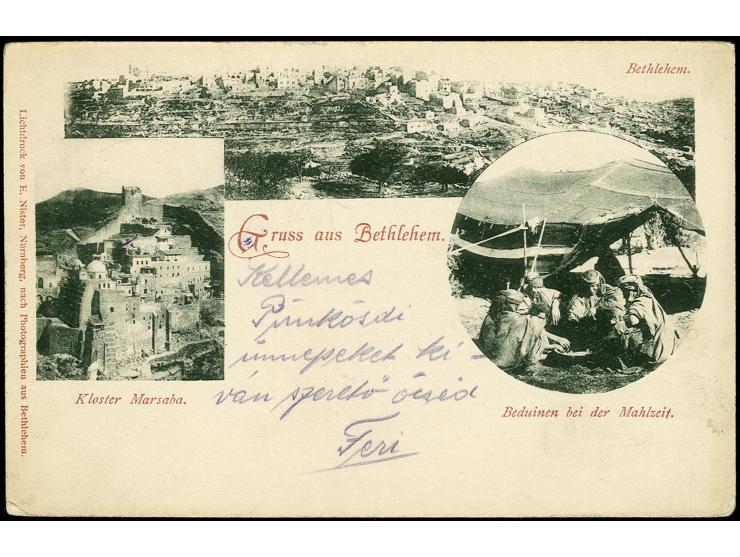 Bethlehem.
Gruss aus Bethlehem.
Kellemes
Pünkösdi
ünnepeket ki-
ván szerető öcséd
Feri
Kloster Marsaba.
Beduinen bei der Mahlzeit.
Lichtdruck von E. Nister, Nürnberg, nach Photographien aus Bethlehem.